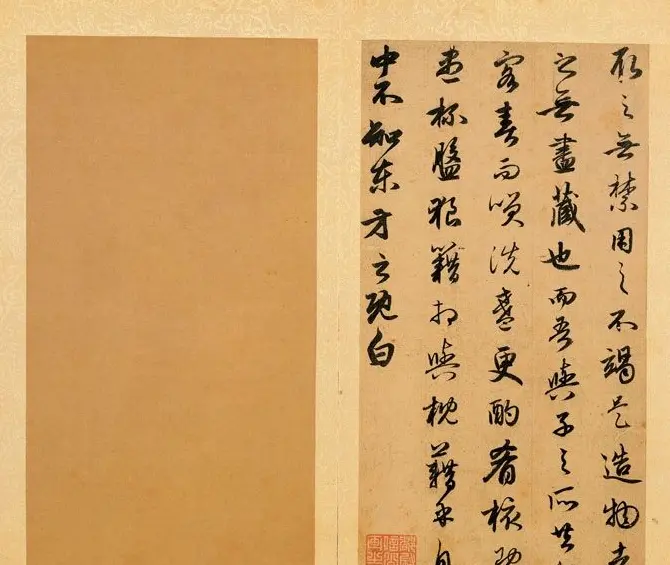 取之無禁用之不竭是造物者
之無盡藏也而吾與子之所共
客喜而咲洗盞更酌肴核既
盡杯盤狼籍相與枕藉乎舟
中不知東方之既白